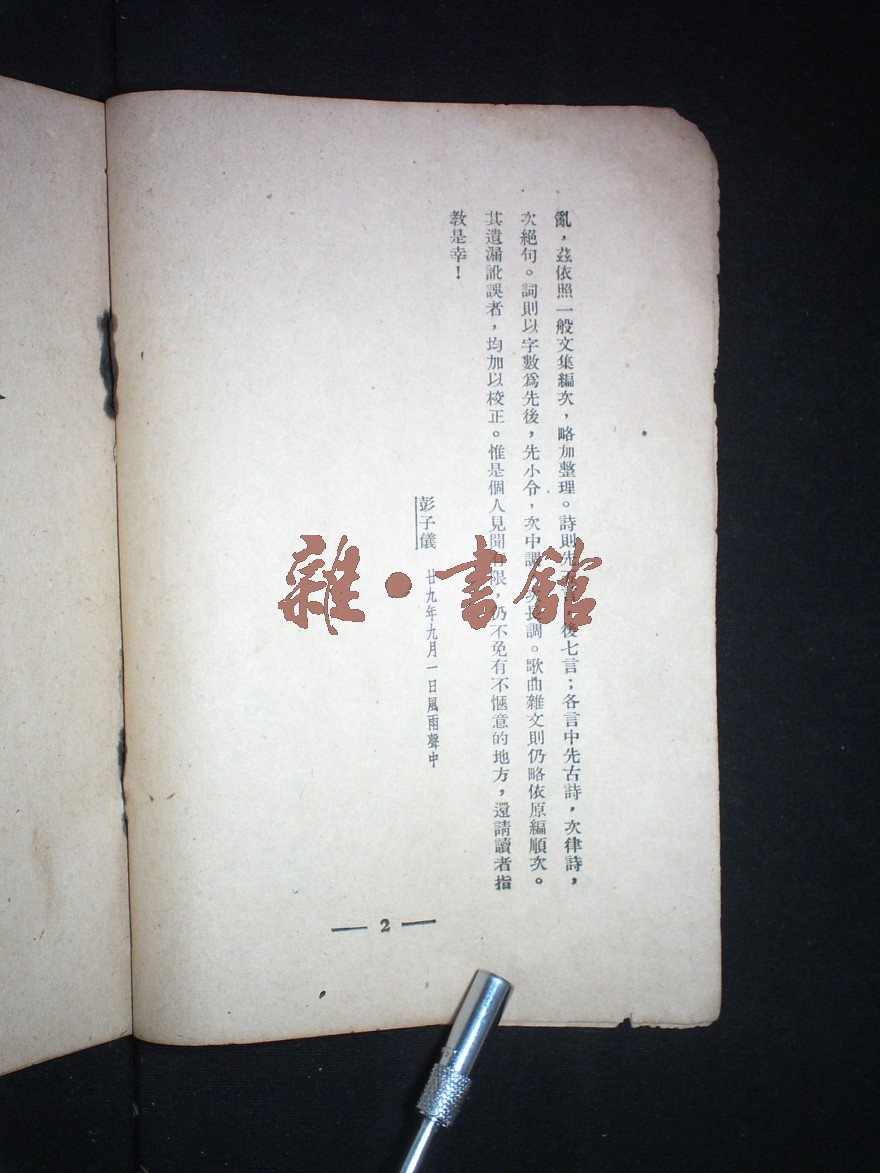 亂，茲依照一般文集編次，略加整理。詩則先五言，後七言；各言中先古詩，次律詩，
次絕句。詞則以字數爲先後，先小令，次中調，次長調。歌曲雜文則仍略依原編順次。
其遺漏訛誤者，均加以校正。惟是個人見聞有限，仍不免有不愜意的地方，還請讀者指
教是幸！
彭子儀 廿九年九月一日風雨聲中
— 2 —
雜·書館